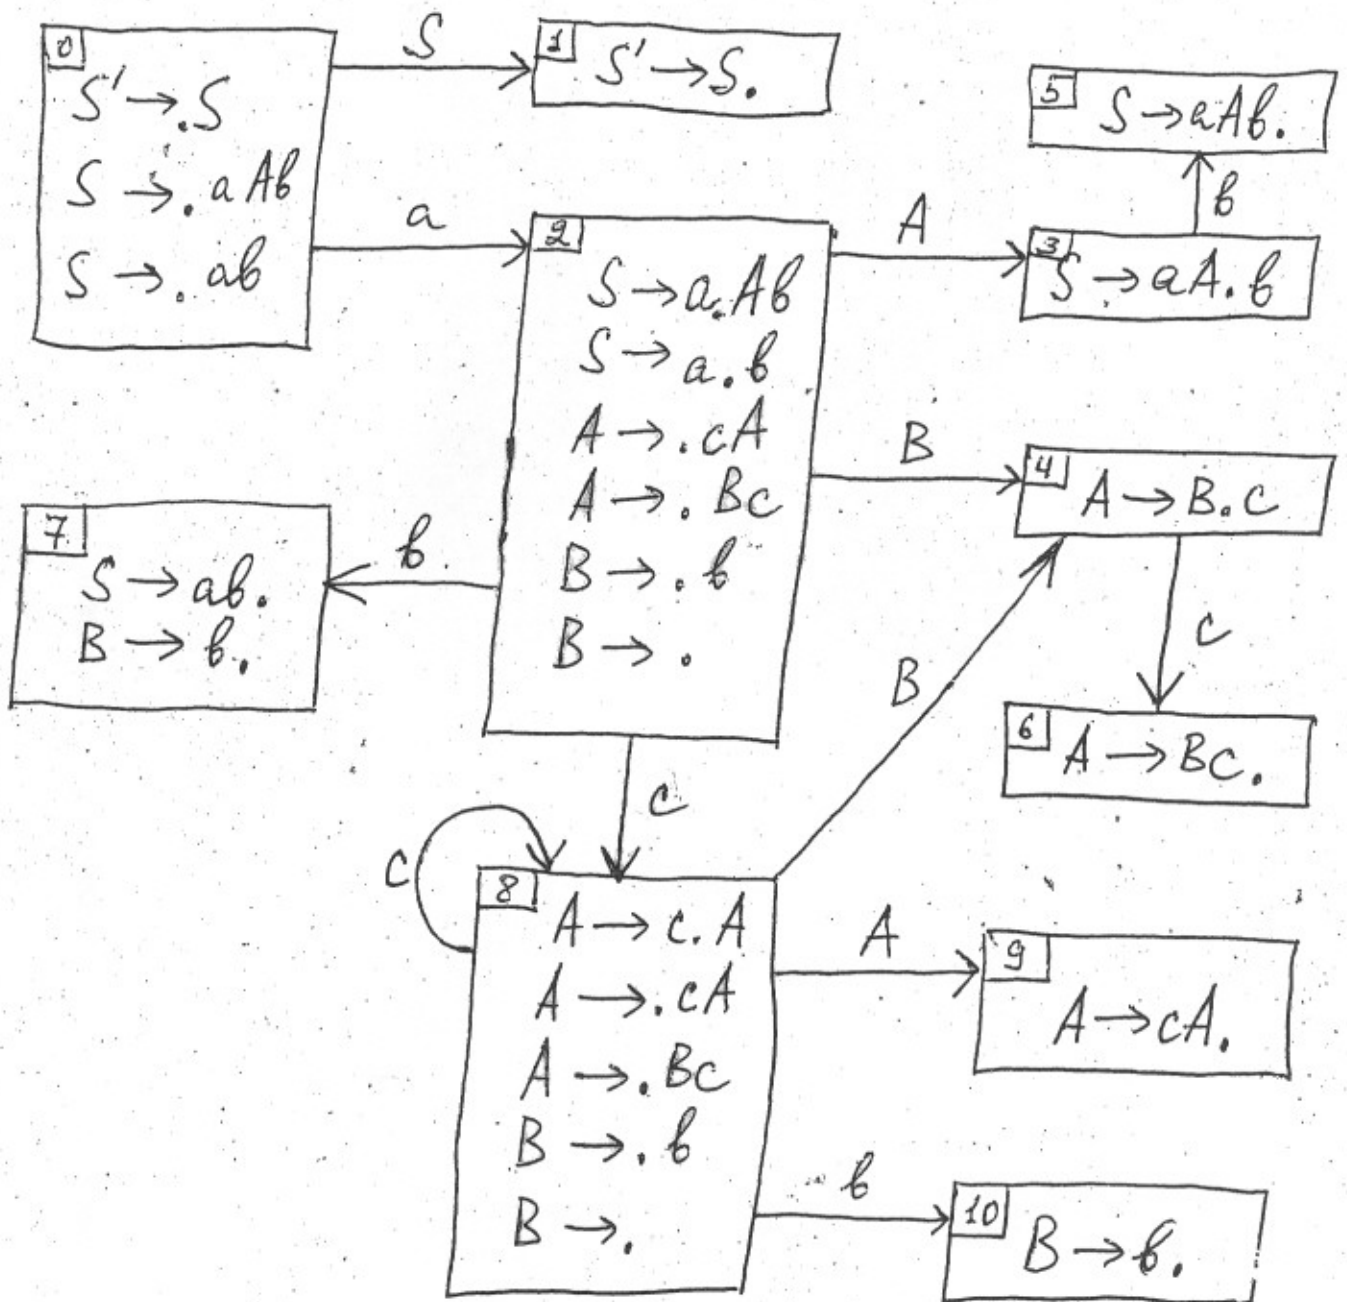 0
S' → .S
S → . aAb
S → . ab
S
a
1
S' → S.
2
S → a.Ab
S → a.b
A → .cA
A → . Bc
B → . b
B → .
A
3
S → aA.b
b
5
S → aAb.
B
4
A → B.c
c
6
A → Bc.
b
7
S → ab.
B → b.
c
c
8
A → c.A
A → .cA
A → .Bc
B → . b
B → .
B
A
9
A → cA.
b
10
B → b.